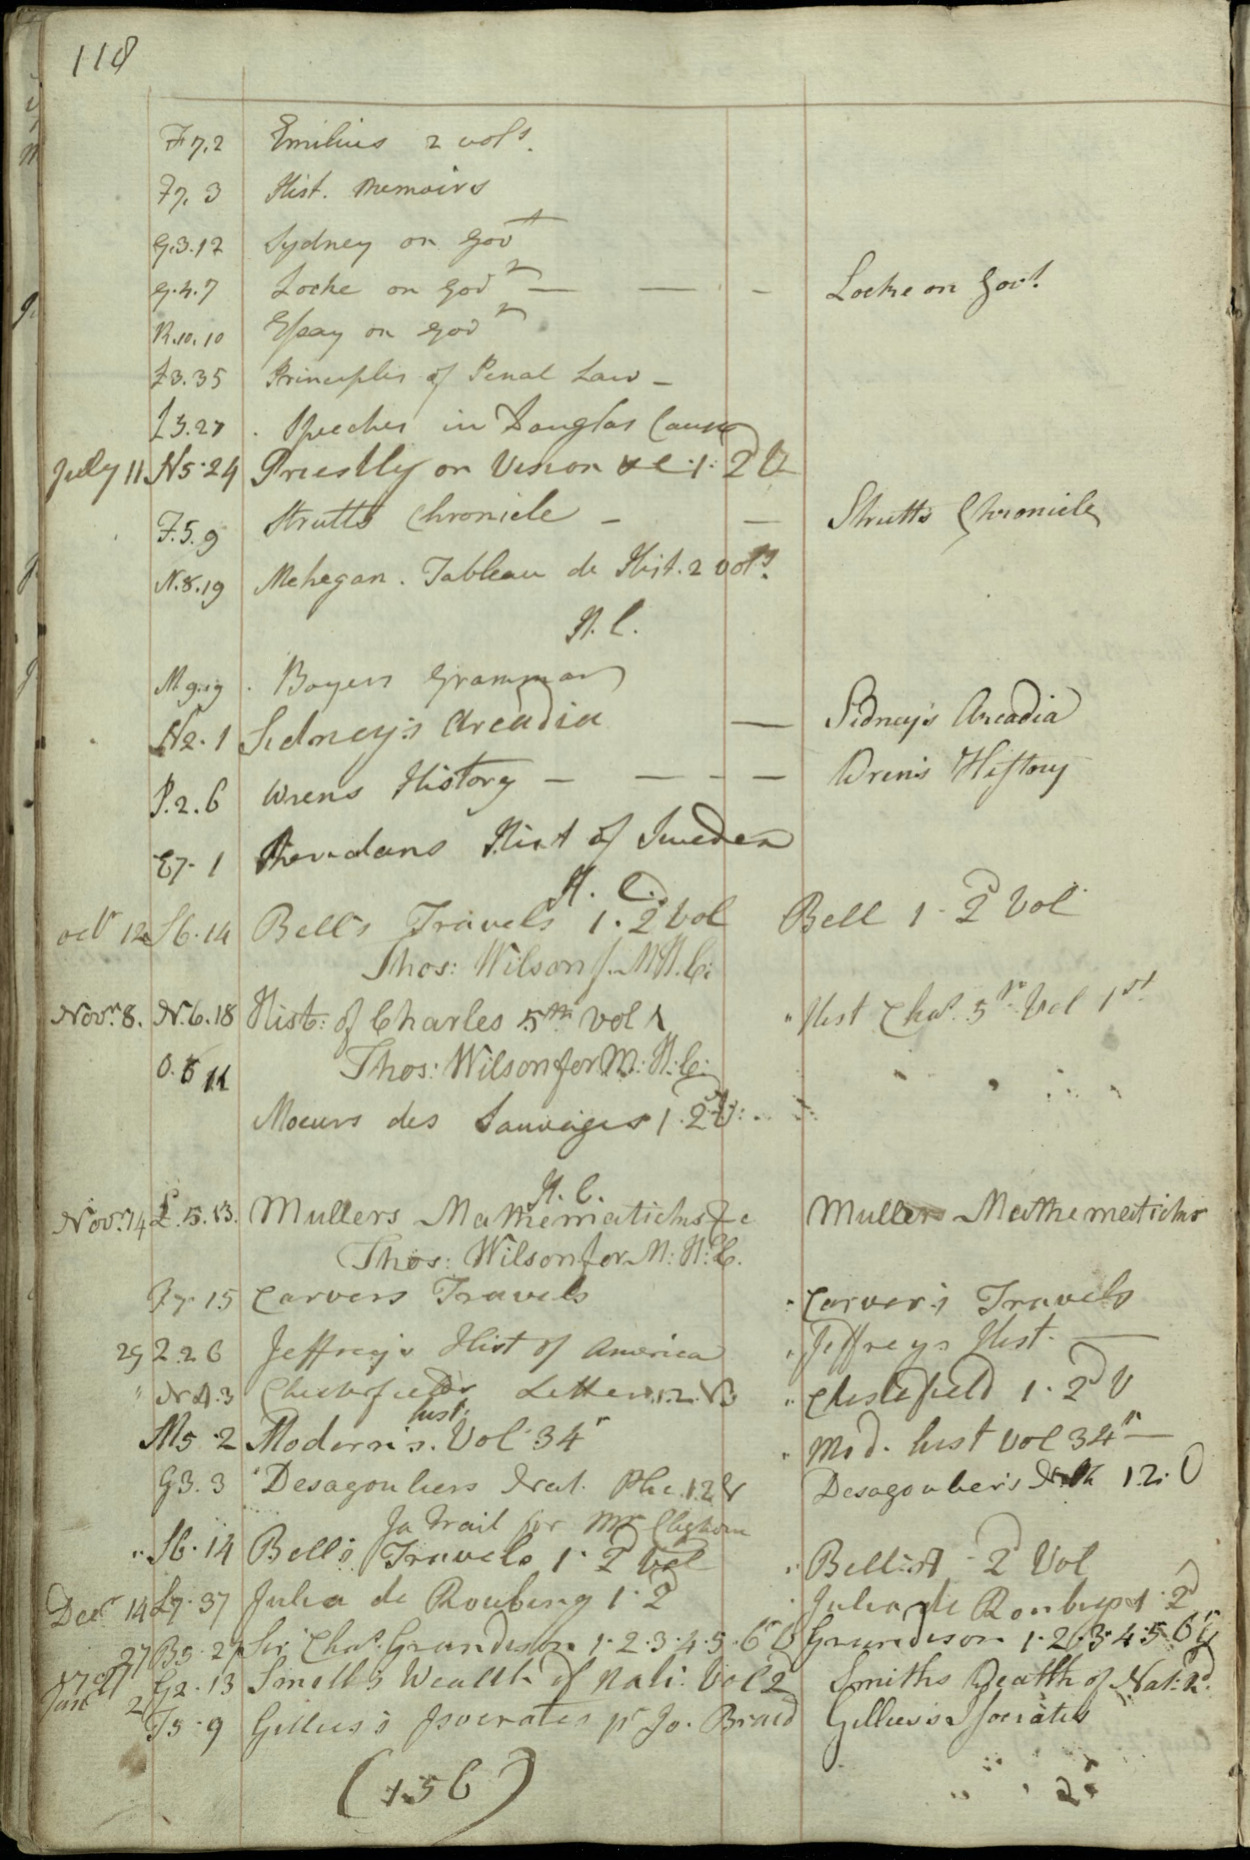 118
F7.2 Emilius 2 vols.
F7.3 Hist. Memoirs
G.3.12 Sydney on Govt
G.4.7 Locke on Govt — — - Locke on Govt
R.10.10 Essay on Govt
L3.35 Principles of Penal Law -
L3.27 . Speeches in Douglas Cause
July 11 N5.24 Priestly on Vision 1. 2 V
F.5.9 Strutts Chronicle - — Strutts Chronicle
N.8.19 Mehegan. Tableau de Hist. 2 vols.
H. C.
M9.19 . Boyers Grammar
N2.1 Sidney's Arcadia — Sidney's Arcadia
P.2.6 Wrens History - — - — Wren's History
E7.1 Sheridans Hist of Sweden
H. C.
Octr 12 S6.14 Bell's Travels 1. 2d Vol Bell 1. 2d Vol
Thos: Wilson f. M.H.C:
Novr. 8. N.6.18 Hist: of Charles 5th vol 1 Hist Chas. 5th Vol 1st
O.6 11 Thos: Wilson for M: H: C:
Moeurs des Sauvages 1. 2d V:
H. C.
Novr. 14 L.5.13. Mullers Mathematicks &c Mullers Mathematicks
Thos: Wilson for M: H: C.
F7.15 Carvers Travels Carver's Travels
29 Z.2.6 Jeffrey's Hist of America Jeffreys Hist. —
" Chesterfields Letters 1. 2. V Chesterfield 1. 2d V
hist:
M5.2 Modern s. Vol 34th Mod. hist vol 34th —
G3.3 Desaguliers Nat. Phi. 1. 2 V Desagoulier's N. Ph 1 2. V
Ja Trail for Mr Cleghorn
" S6.14 Bell's Travels 1. 2d Vol Bell 1. 2d Vol
Decr 14 L7.37 Julia de Roubigny 1. 2d Julia de Roubigne 1. 2d
27 B5.27 Sir Chas. Grandison 1. 2. 3. 4. 5. 6th V Grandison 1. 2. 3. 4. 5 6th V
1791
Jany 2 G2.13 Smith's Wealth of Nati: Vol 2 Smiths Wealth of Nat: 2d.
F5.9 Gillies's Isocrates pr Jo. Braid Gillies's Isocrates
(156)
2